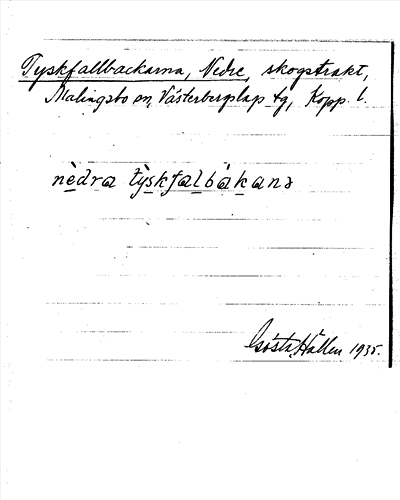 Tyskfallbackarna, Nedre, skogstrakt,
Malingsbo sn, Västerbergslags tg, Kopp. l.
nèdra tỳskfalbàkanɜ
Gösta Hållen 1935.